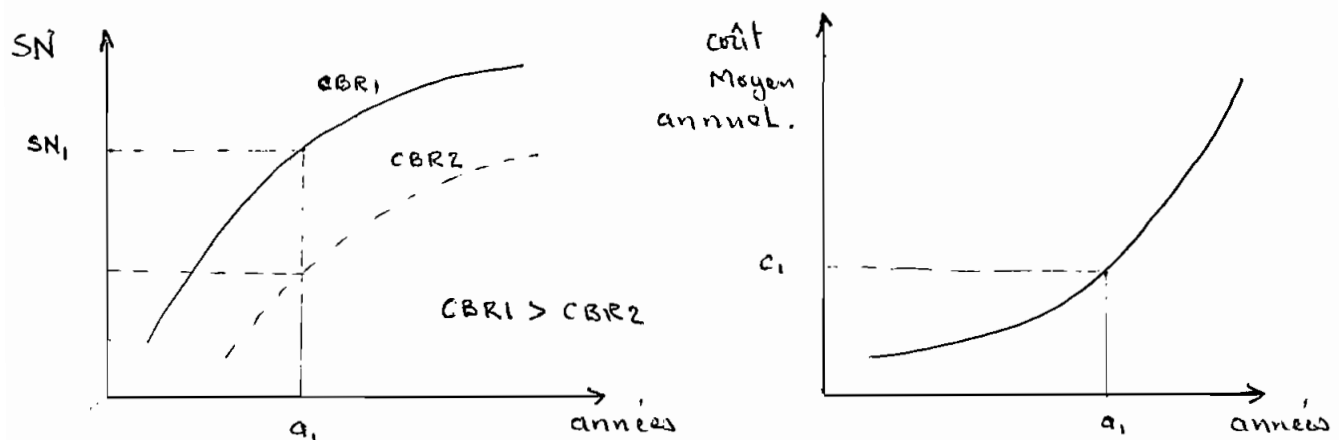 SN
CBR1
SN1
CBR2
CBR1 > CBR2
a1
années
coût
Moyen
annuel.
C1
a1
années